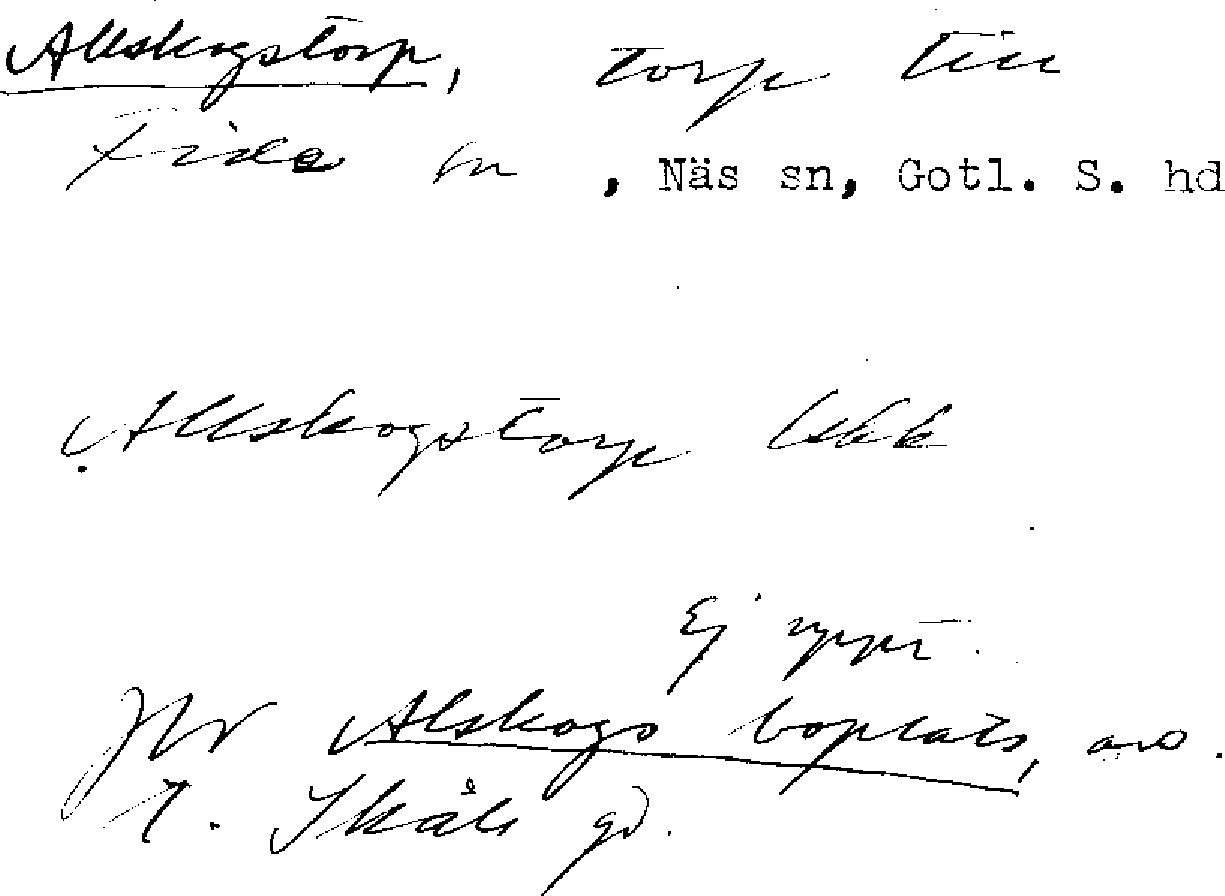 Allskogstorp, torp till
Fide sn, Näs sn, Gotl. S. hd
Allskogstorp
Ej uppt.
Jfr Alskogs boplats, avs.
t. Skåls gd.